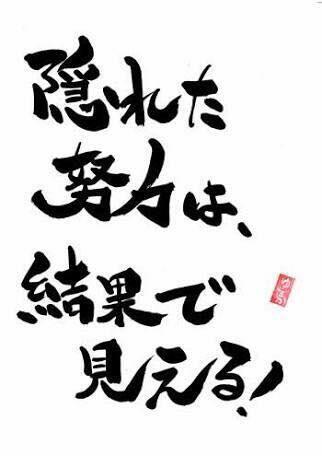 隠れた
努力は、
結果で
見える!